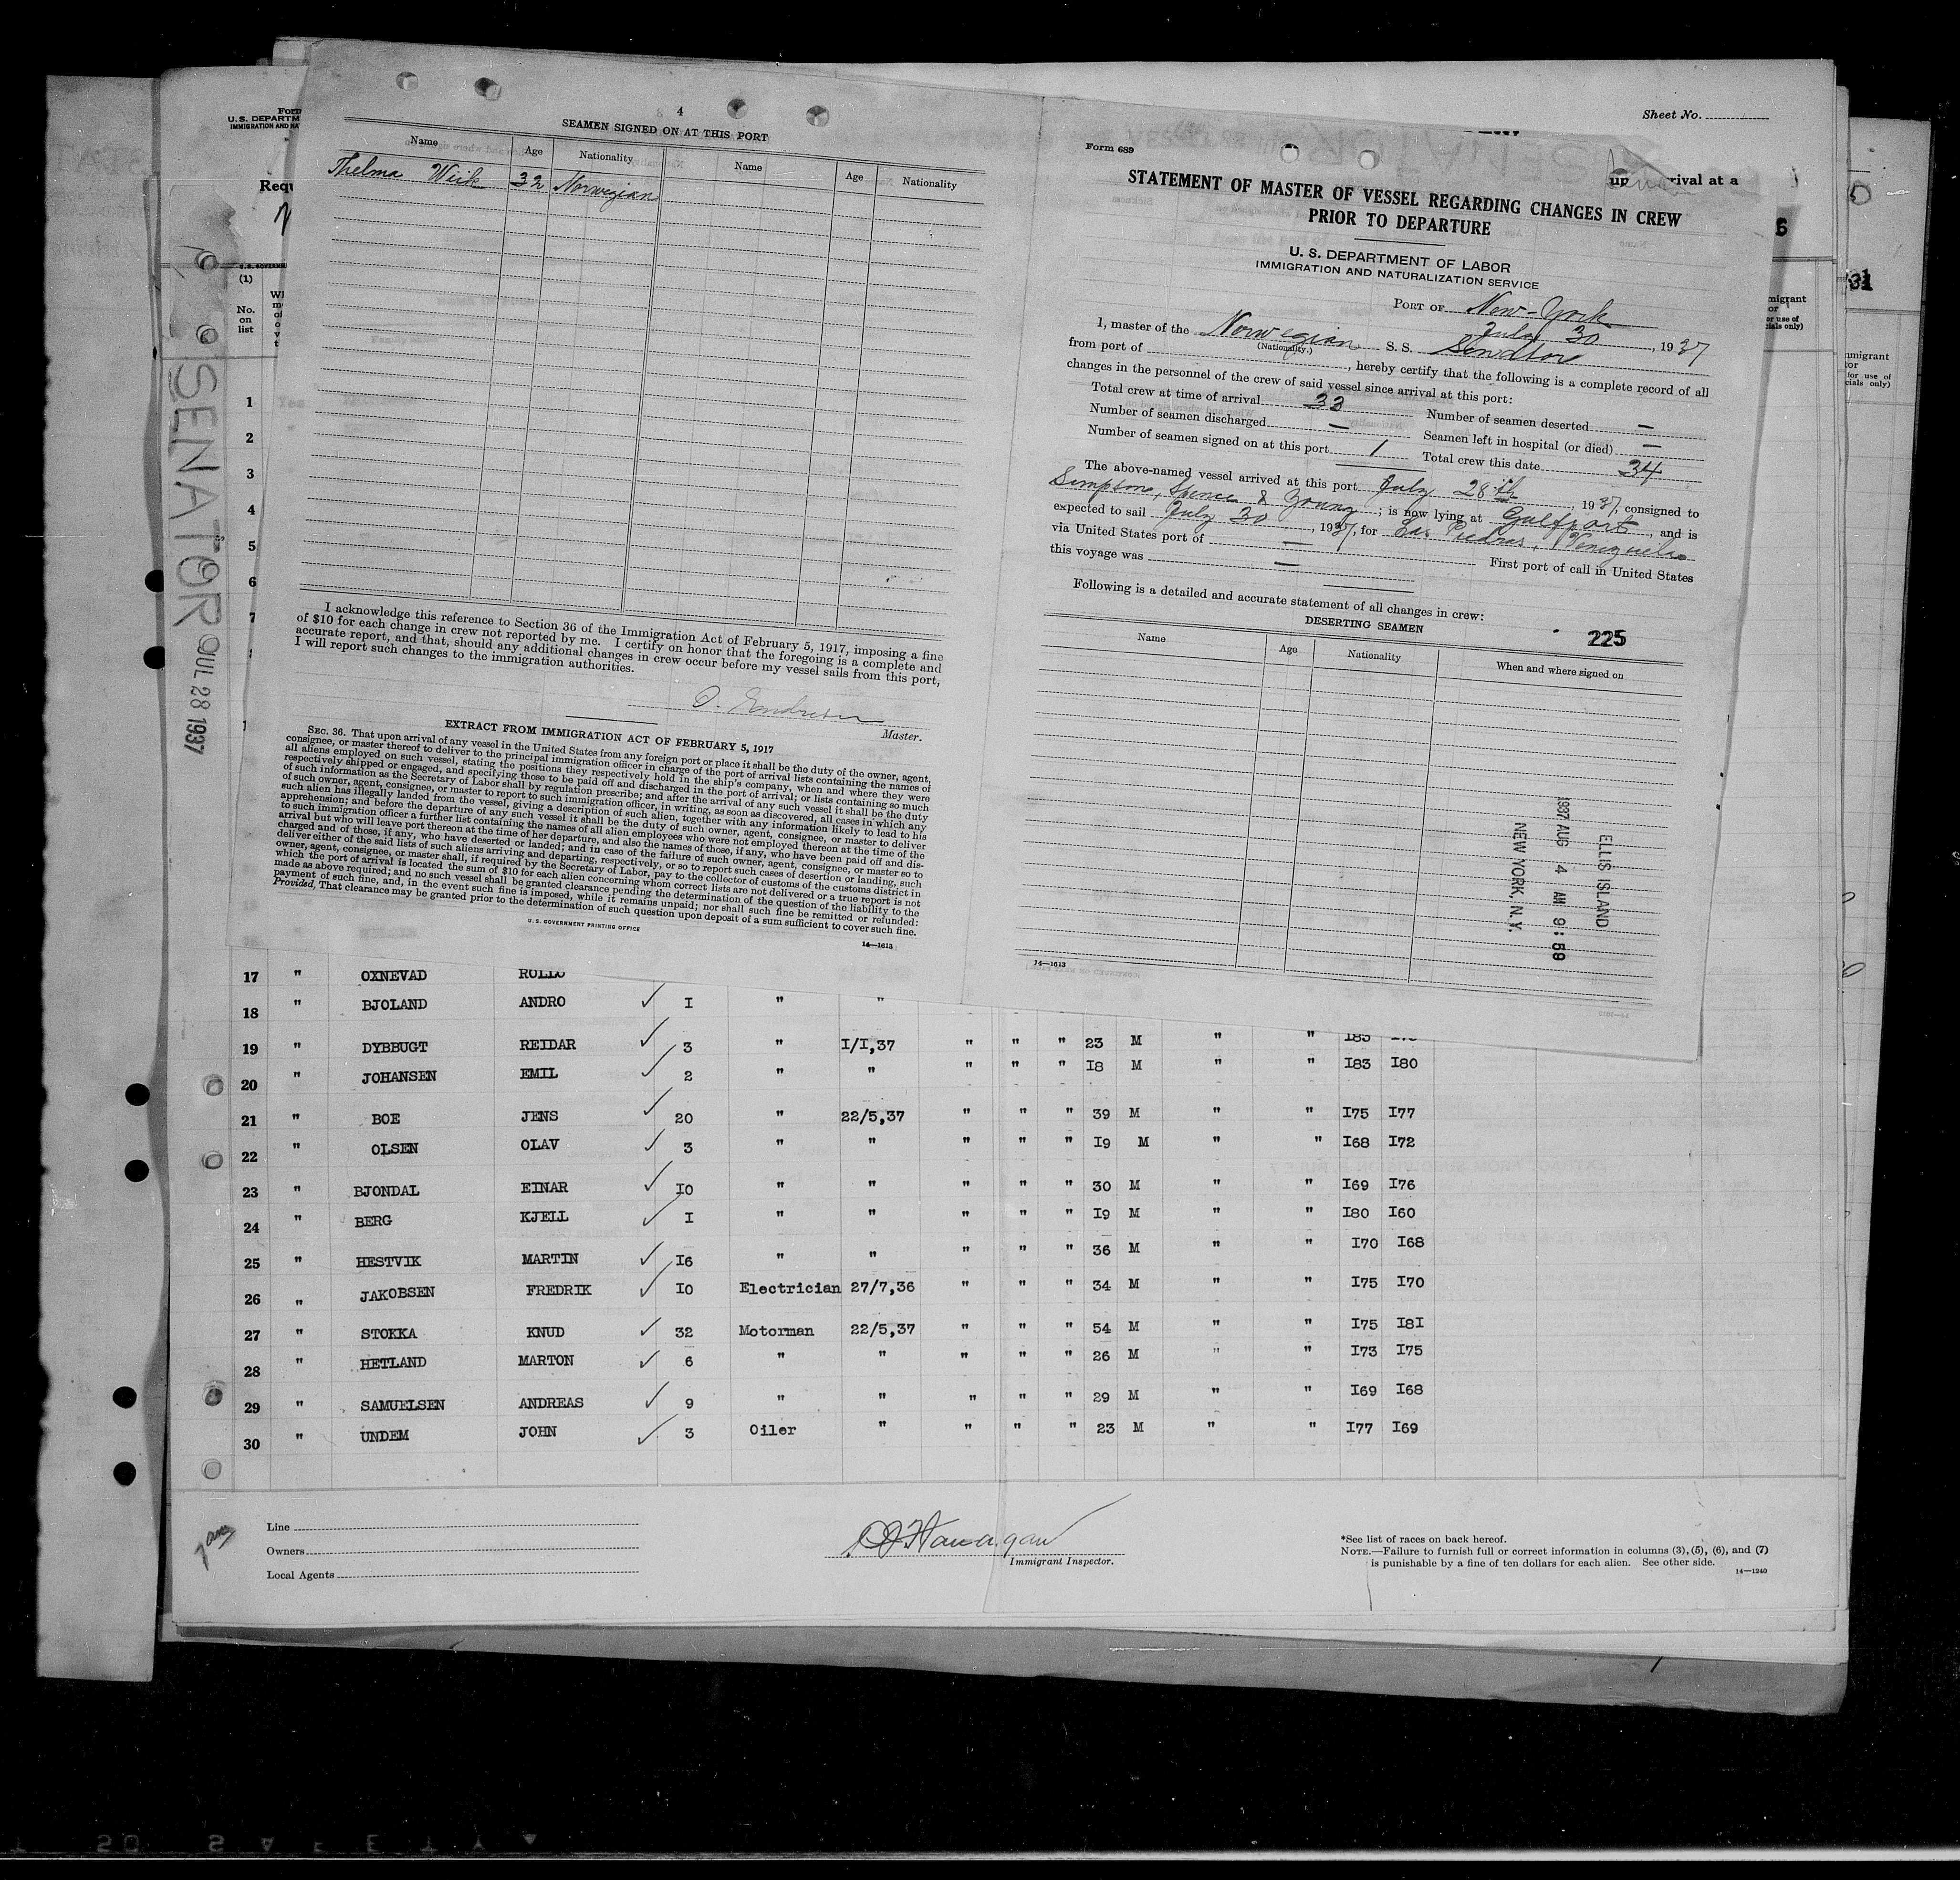 4
SEAMEN SIGNED ON AT THIS PORT
Name Age Nationality Name Age Nationality
Thelma Wiik 32 Norwegian
I acknowledge this reference to Section 36 of the Immigration Act of February 5, 1917, imposing a fine
of $10 for each change in crew not reported by me. I certify on honor that the foregoing is a complete and
accurate report, and that, should any additional changes in crew occur before my vessel sails from this port,
I will report such changes to the immigration authorities.
Master.
EXTRACT FROM IMMIGRATION ACT OF FEBRUARY 5, 1917
SEC. 36. That upon arrival of any vessel in the United States from any foreign port or place it shall be the duty of the owner, agent,
consignee, or master thereof to deliver to the principal immigration officer in charge of the port of arrival lists containing the names of
all aliens employed on such vessel, stating the positions they respectively hold in the ship's company, when and where they were
respectively shipped or engaged, and specifying those to be paid off and discharged in the port of arrival; or lists containing so much
of such information as the Secretary of Labor shall by regulation prescribe; and after the arrival of any such vessel it shall be the duty
of such owner, agent, consignee, or master to report to such immigration officer, in writing, as soon as discovered, all cases in which any
such alien has illegally landed from the vessel, giving a description of such alien, together with any information likely to lead to his
apprehension; and before the departure of any such vessel it shall be the duty of such owner, agent, consignee, or master to deliver
to such immigration officer a further list containing the names of all alien employees who were not employed thereon at the time of the
arrival but who will leave port thereon at the time of her departure, and also the names of those, if any, who have been paid off and dis-
charged and of those, if any, who have deserted or landed; and in case of the failure of such owner, agent, consignee, or master so to
deliver either of the said lists of such aliens arriving and departing, respectively, or so to report such cases of desertion or landing, such
owner, agent, consignee, or master shall, if required by the Secretary of Labor, pay to the collector of customs of the customs district in
which the port of arrival is located the sum of $10 for each alien concerning whom correct lists are not delivered or a true report is not
made as above required; and no such vessel shall be granted clearance pending the determination of the question of the liability to the
payment of such fine, and, in the event such fine is imposed, while it remains unpaid; nor shall such fine be remitted or refunded:
Provided, That clearance may be granted prior to the determination of such question upon deposit of a sum sufficient to cover such fine.
U. S. GOVERNMENT PRINTING OFFICE
14—1613
Form 689
STATEMENT OF MASTER OF VESSEL REGARDING CHANGES IN CREW
PRIOR TO DEPARTURE
U. S. DEPARTMENT OF LABOR
IMMIGRATION AND NATURALIZATION SERVICE
PORT OF New-York
July 30, 1937
I, master of the Norwegian S. S. Senator
(Nationality.)
from port of , hereby certify that the following is a complete record of all
changes in the personnel of the crew of said vessel since arrival at this port:
Total crew at time of arrival 33 Number of seamen deserted —
Number of seamen discharged — Seamen left in hospital (or died) —
Number of seamen signed on at this port 1 Total crew this date 34
The above-named vessel arrived at this port July 28th, 1937, consigned to
Simpson, Spence & Young; is now lying at Gulfport, and is
expected to sail July 30, 1937, for Las Piedras, Venezuela
via United States port of — First port of call in United States
this voyage was —
Following is a detailed and accurate statement of all changes in crew:
DESERTING SEAMEN
225
Name Age Nationality When and where signed on
ELLIS ISLAND
1937 AUG 4 AM 9:59
NEW YORK, N. Y.
14—1613
Sheet No.
up rival at a
Form
U. S. DEPARTM
IMMIGRATION AND NA
Requ
(1)
No.
on
list
SENATOR
JUL 28 1937
1
2
3
4
5
6
7
17 " OXNEVAD ROLLO
18 " BJOLAND ANDRO ✓ I " "
19 " DYBBUGT REIDAR ✓ 3 " I/I,37 " " " 23 M " " I83
20 " JOHANSEN EMIL ✓ 2 " " " " " I8 M " " I83 I80
21 " BOE JENS ✓ 20 " 22/5,37 " " " 39 M " " I75 I77
22 " OLSEN OLAV ✓ 3 " " " " " I9 M " " I68 I72
23 " BJONDAL EINAR ✓ IO " " " " " 30 M " " I69 I76
24 " BERG KJELL ✓ I " " " " " I9 M " " I80 I60
25 " HESTVIK MARTIN ✓ I6 " " " " " 36 M " " I70 I68
26 " JAKOBSEN FREDRIK ✓ IO Electrician 27/7,36 " " " 34 M " " I75 I70
27 " STOKKA KNUD ✓ 32 Motorman 22/5,37 " " " 54 M " " I75 I8I
28 " HETLAND MARTON ✓ 6 " " " " " 26 M " " I73 I75
29 " SAMUELSEN ANDREAS ✓ 9 " " " " " 29 M " " I69 I68
30 " UNDEM JOHN ✓ 3 Oiler " " " " 23 M " " I77 I69
Line
Owners
Local Agents
7 am
Immigrant Inspector.
*See list of races on back hereof.
NOTE.—Failure to furnish full or correct information in columns (3), (5), (6), and (7)
is punishable by a fine of ten dollars for each alien. See other side.
14—1240